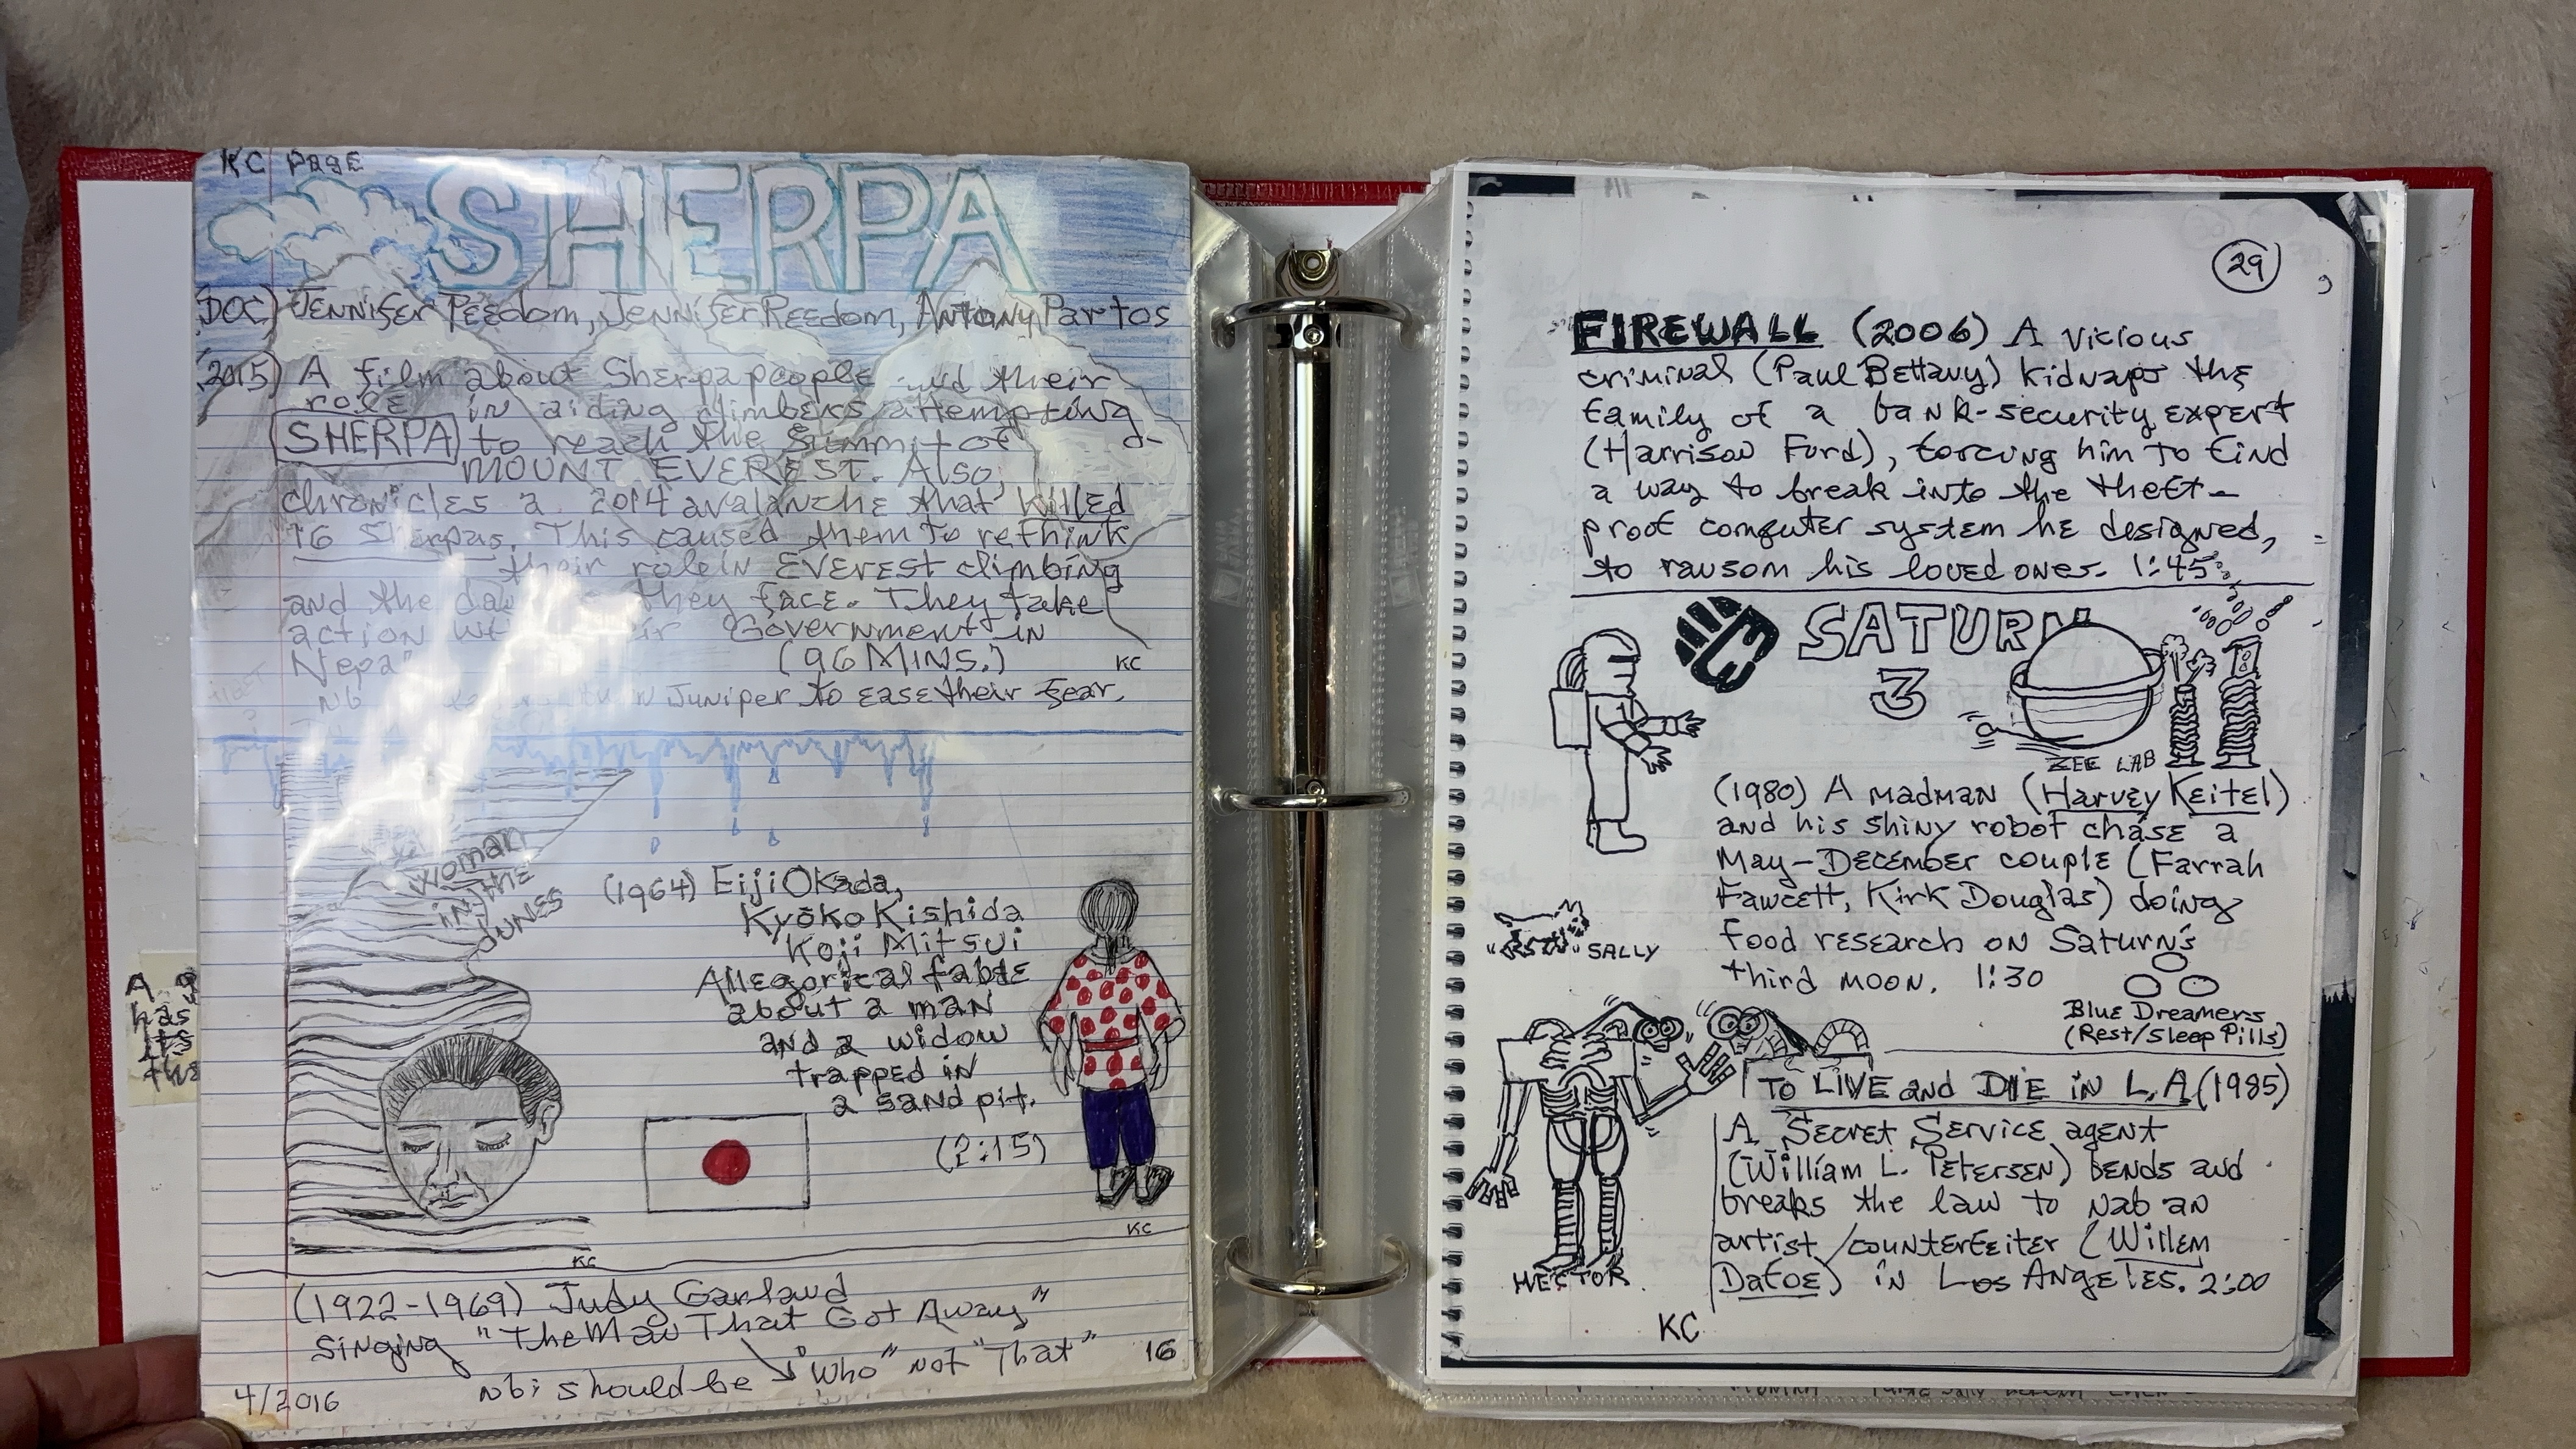 KC PAGE
SHERPA
(DOC) Jennifer Peedom, Jennifer Peedom, Antony Partos
(2015) A film about Sherpa people and their
role in aiding climbers attempting
SHERPA to reach the summit of
MOUNT EVEREST. Also,
chronicles a 2014 avalanche that killed
16 Sherpas. This caused them to rethink
their role in EVEREST climbing
and the they face. They take
action Government in
Nepal (96 MINS.) KC
nb Juniper to ease their fear.
Woman
in the
DUNES
(1964) Eiji Okada,
Kyōko Kishida
Koji Mitsui
Allegorical fable
about a man
and a widow
trapped in
a sand pit.
(2:15)
KC
KC
(1922-1969) Judy Garland
Singing "The Man That Got Away"
nb: should be "Who" not "That" 16
4/2016
A
has
its
the
29
FIREWALL (2006) A vicious
criminal (Paul Bettany) kidnaps the
family of a bank-security expert
(Harrison Ford), forcing him to find
a way to break into the theft-
proof computer system he designed,
to ransom his loved ones. 1:45
SATURN
3
ZEE LAB
(1980) A madman (Harvey Keitel)
and his shiny robot chase a
May-December couple (Farrah
Fawcett, Kirk Douglas) doing
food research on Saturn's
third moon. 1:30
"SALLY
Blue Dreamers
(Rest/Sleep Pills)
HECTOR
TO LIVE and DIE in L.A (1985)
A Secret Service agent
(William L. Petersen) bends and
breaks the law to nab an
artist/counterfeiter (Willem
Dafoe) in Los Angeles. 2:00
KC